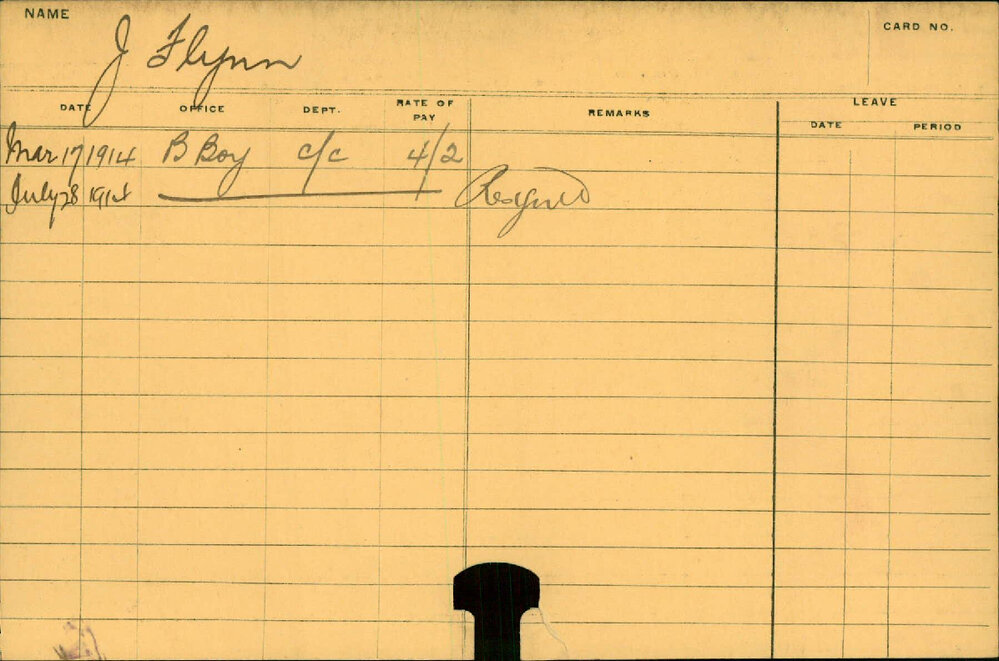 NAME
CARD NO.
J Flynn
DATE OFFICE DEPT. RATE OF PAY REMARKS LEAVE
DATE PERIOD
Mar 17 1914 B Boy c/c 4/2
July 28 1914 Resigned